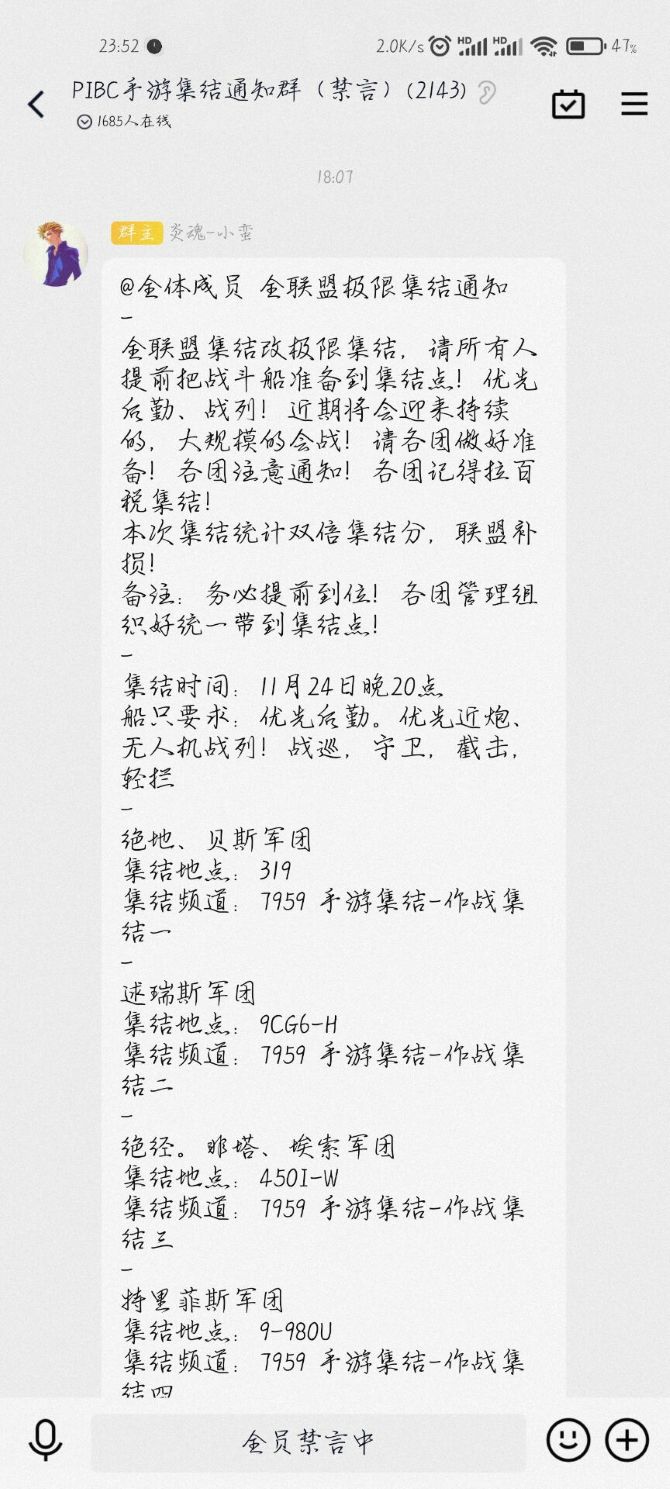 23:52
2.0K/s HD HD 47%
PIBC手游集结通知群（禁言）(2143)
1685人在线
18:07
群主 炎魂-小蛮
@全体成员 全联盟极限集结通知
-
全联盟集结改极限集结，请所有人
提前把战斗船准备到集结点！优先
后勤、战列！近期将会迎来持续
的，大规模的会战！请各团做好准
备！各团注意通知！各团记得拉百
税集结！
本次集结统计双倍集结分，联盟补
损！
备注：务必提前到位！各团管理组
织好统一带到集结点！
-
集结时间：11月24日晚20点
船只要求：优先后勤。优先近炮、
无人机战列！战巡，守卫，截击，
轻拦
-
绝地、贝斯军团
集结地点：319
集结频道：7959 手游集结-作战集
结一
-
逑瑞斯军团
集结地点：9CG6-H
集结频道：7959 手游集结-作战集
结二
-
绝经。耶塔、埃索军团
集结地点：450I-W
集结频道：7959 手游集结-作战集
结三
-
特里菲斯军团
集结地点：9-980U
集结频道：7959 手游集结-作战集
结四
全员禁言中